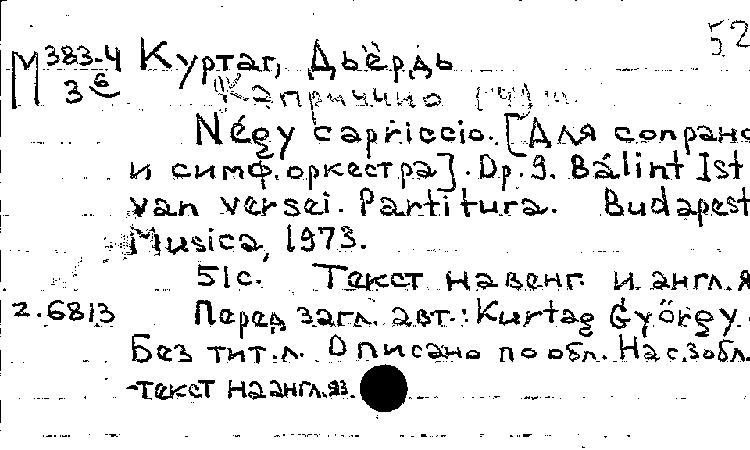 52
М 383-4 Куртаг, Дьёрдь
3 6 Каприччио (4)
Négy capriccio. [Для сопрано
и симф. оркестра]. Op. 9. Bálint Ist
van versei. Partitura. Budapest
Musica, 1973.
51 с. Текст на венг. и англ. я
2.6813 Перед загл. авт.: Kurtag György.
Без тит. л. Описано по обл. На с. 3 обл.
-текст на англ. яз.